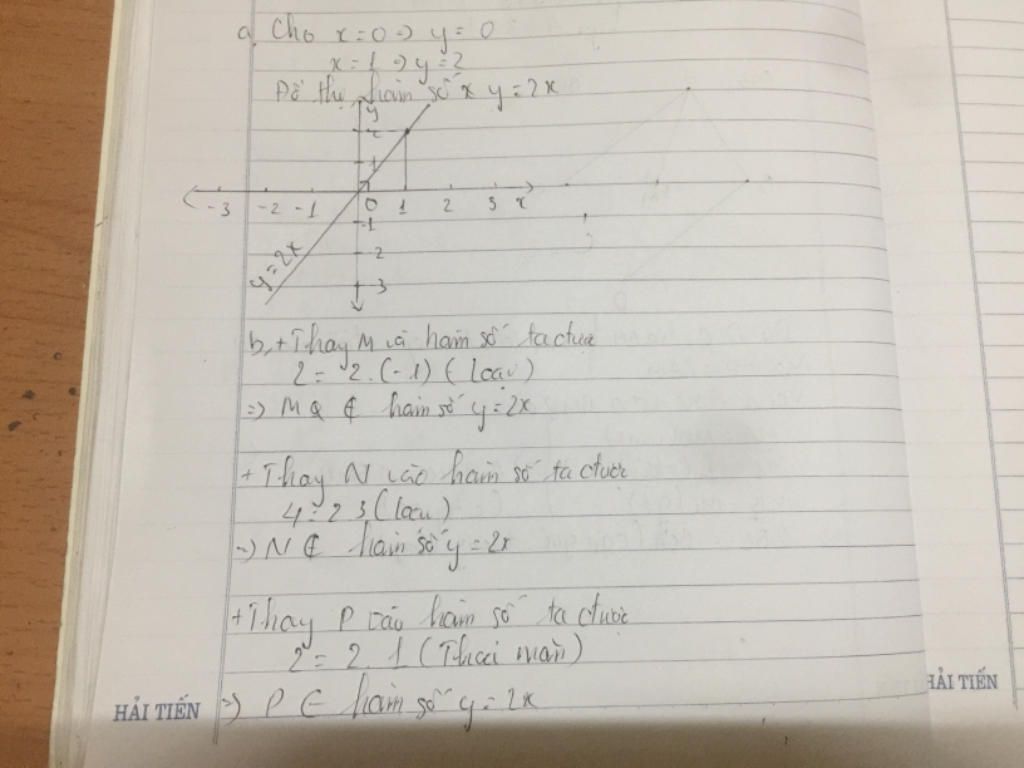 a, Cho x = 0 => y = 0
x = 1 => y = 2
Đồ thị hàm số y = 2x
y
2
1
-3 -2 -1 0 1 2 3 x
-1
-2
-3
y = 2x
b, + Thay M và hàm số ta được
2 = 2.(-1) (loại)
=> M ∉ hàm số y = 2x
+ Thay N vào hàm số ta được
4 = 2 3 (loại)
=> N ∉ hàm số y = 2x
+ Thay P vào hàm số ta được
2 = 2.1 (Thoải mãn)
=> P ∈ hàm số y = 2x
HẢI TIẾN
HẢI TIẾN